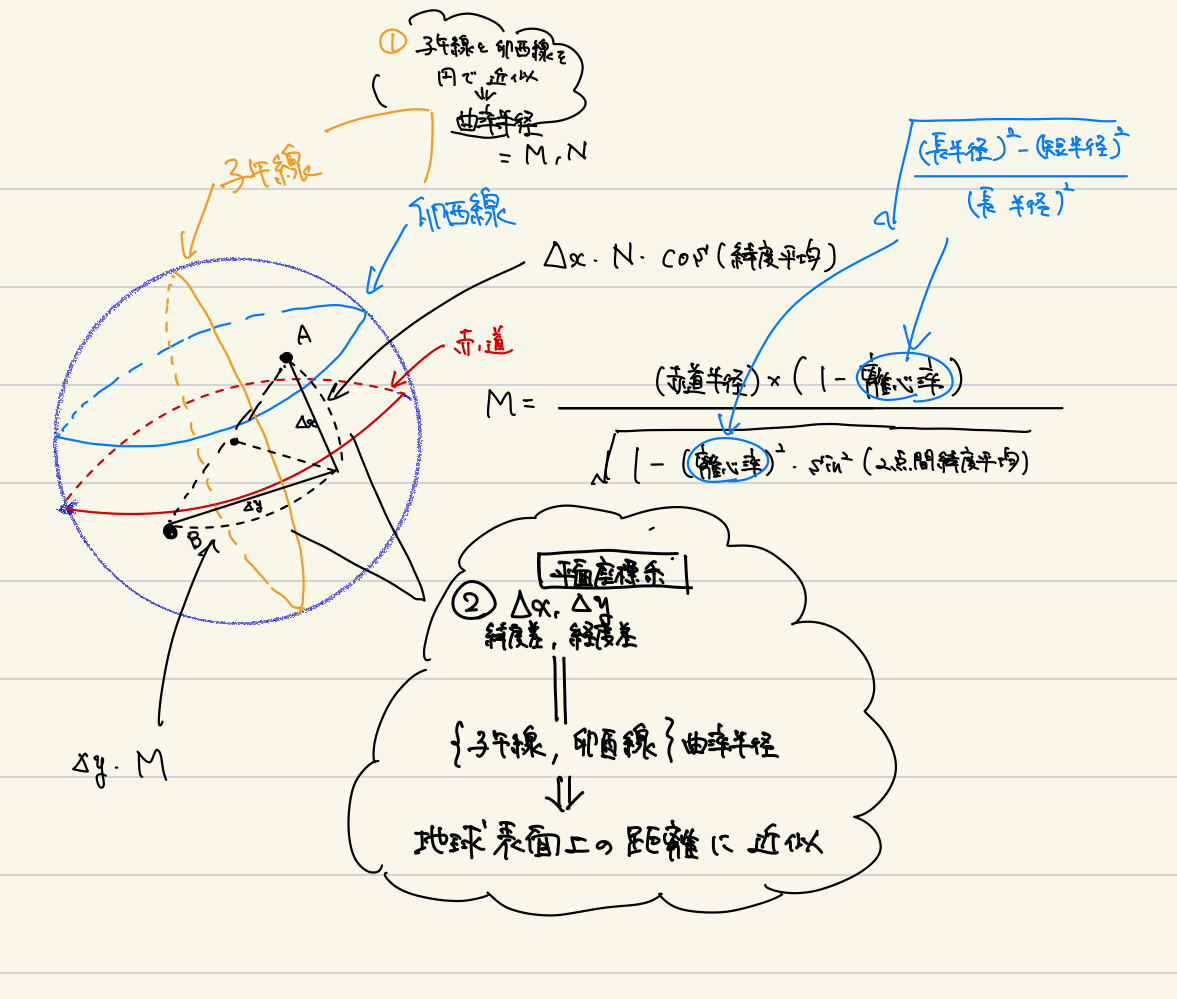 ① 子午線と卯酉線を
円で近似
⇓
曲率半径
= M, N
子午線
卯酉線
√((長半径)² - (短半径)² / (長半径)²)
Δx · N · cos (緯度平均)
赤道
A
Δx
Δy
B
M = (赤道半径) × (1 - 離心率) / √(1 - (離心率)² · sin² (2点間緯度平均))
平面座標系
② Δx, Δy
緯度差, 経度差
{子午線, 卯酉線} 曲率半径
⇓
地球表面上の距離に近似
Δy · M